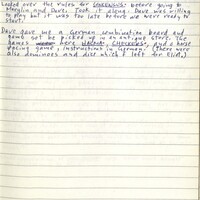 Looked over the rules for before going to
Marglin and Dave. Took it along. Dave was willing
to play but it was too late before we were ready to
start.
Dave gave me a German combination board and
game set he picked up in an antique store. The
games here HALMA, CHECKERS, and a horse
racing game, instructions in German. (There were
also dominoes and dice which I left for